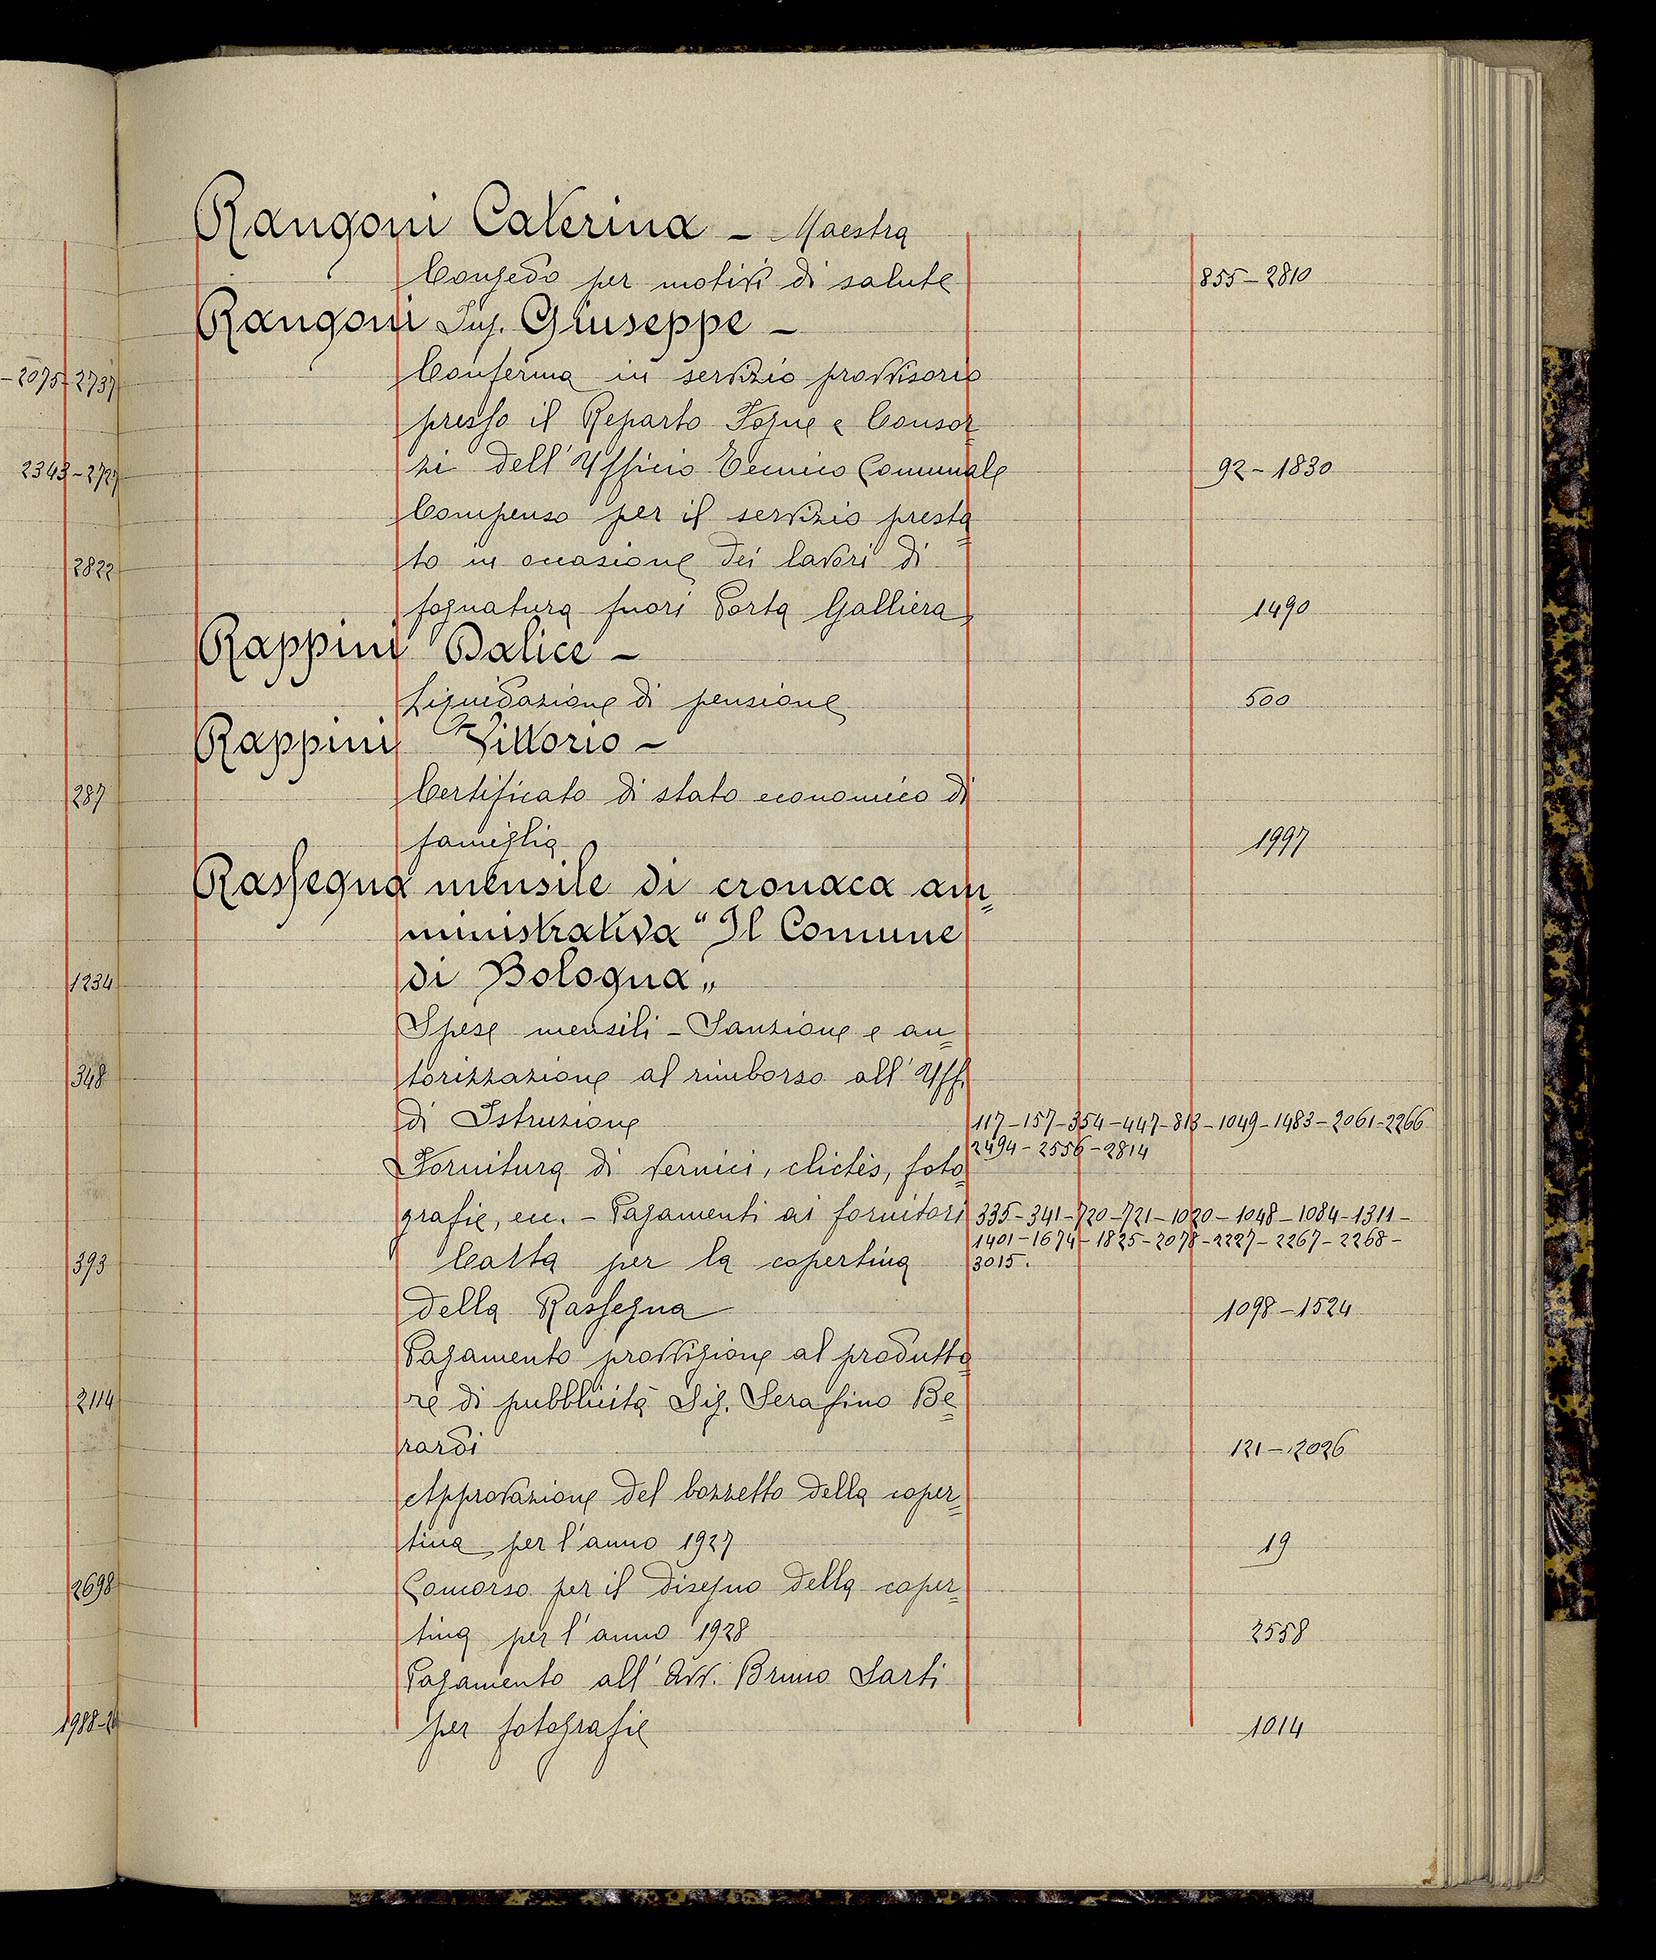 Rangoni Caterina – Maestra
Congedo per motivi di salute 855 – 2810
Rangoni Ing. Giuseppe –
Conferma in servizio provvisorio
presso il Reparto Fogne e Consor-
zi dell'Ufficio Tecnico Comunale 92 – 1830
Compenso per il servizio presta=
to in occasione dei lavori di
fognatura fuori Porta Galliera 1490
Rappini Dalice –
Liquidazione di pensione 500
Rappini Vittorio –
Certificato di stato economico di
famiglia 1997
Rassegna mensile di cronaca am=
ministrativa "Il Comune
di Bologna„
Spese mensili – Sanzione e au=
torizzazione al rimborso all'Uff.
di Istruzione 117–157–354–447–813–1049–1483–2061–2266
2494–2556–2814
Fornitura di vernici, clictès, foto=
grafie, ecc. – Pagamenti ai fornitori 335–341–720–721–1020–1048–1084–1311–
1401–1674–1825–2078–2227–2267–2268–
Carta per la copertina 3015.
della Rassegna 1098 – 1524
Pagamento provvigione al produtto=
re di pubblicità Sig. Serafino Be=
rardi 121 – 2026
Approvazione del bozzetto della coper=
tina per l'anno 1927 19
Concorso per il disegno della coper=
tina per l'anno 1928 2558
Pagamento all'Avv. Bruno Sarti
per fotografie 1014
– 2075 – 2737
2343 – 2727
2822
287
1234
348
393
2114
2698
1988 –